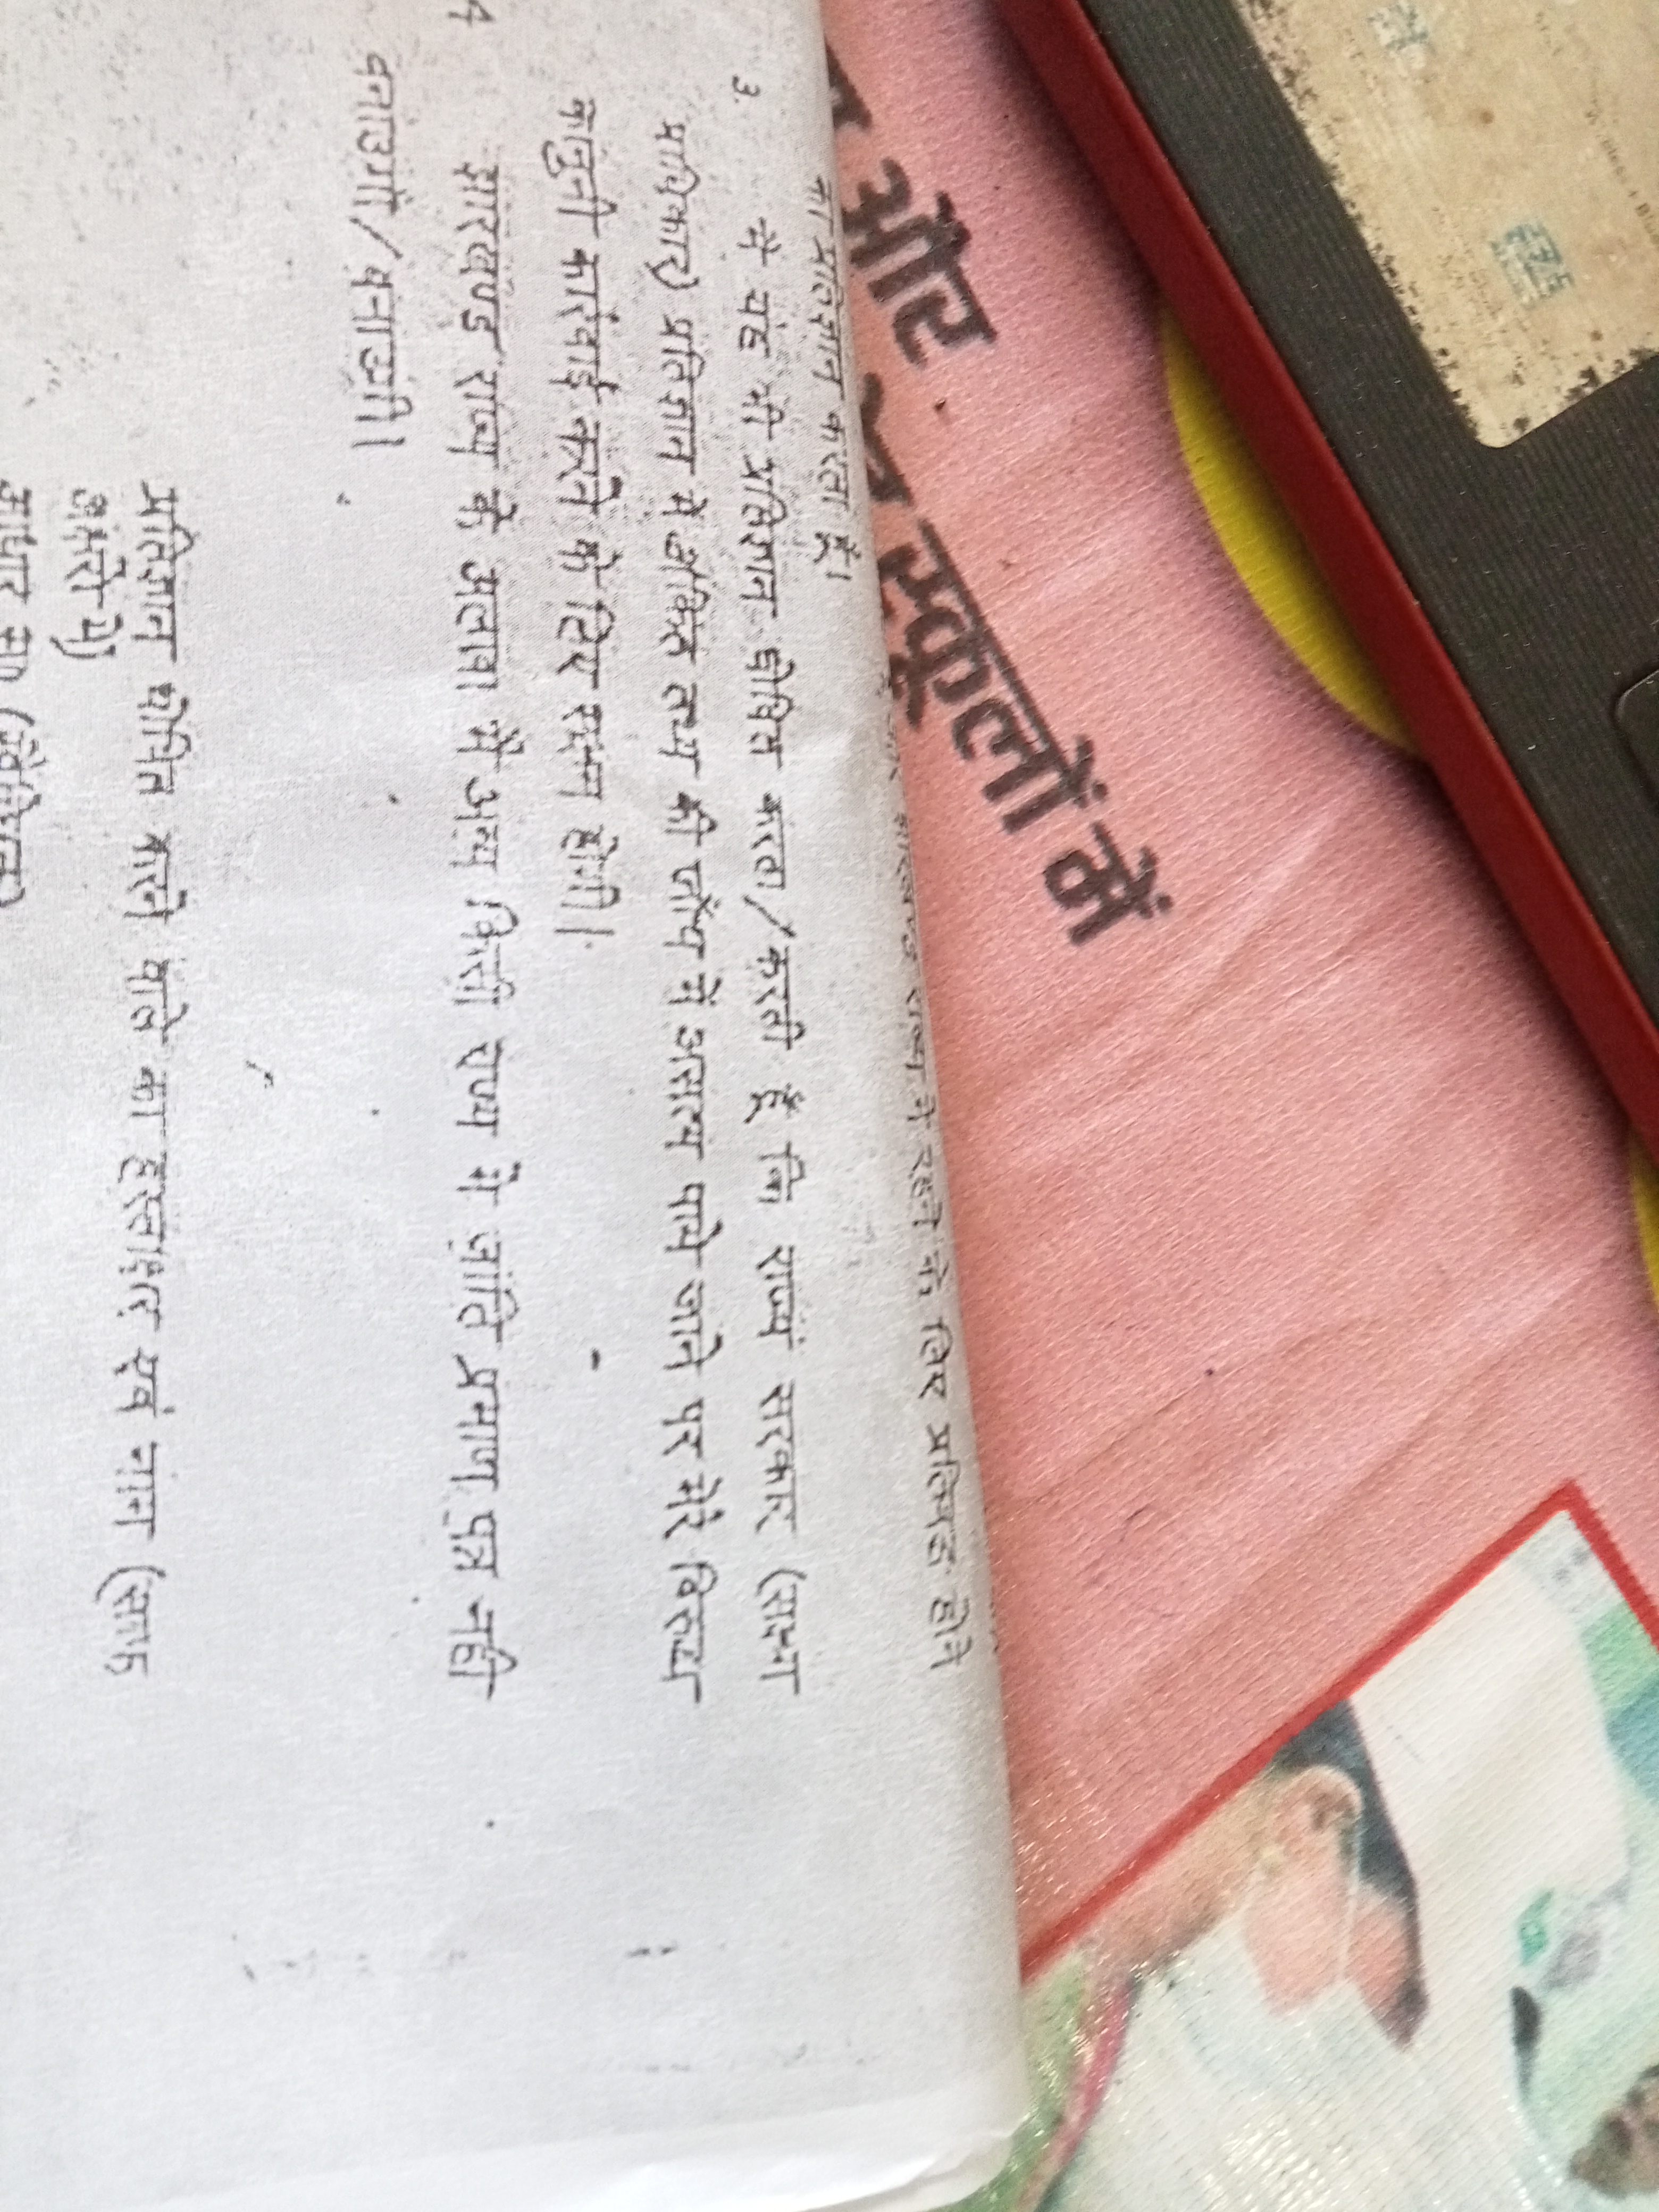 झारखण्ड राज्य में रहने के लिए प्रतिबद्ध होने
का प्रतिज्ञान करता हूँ।
3. मैं यह भी प्रतिज्ञान घोषित करता/करती हूँ कि राज्य सरकार (सक्षम
प्राधिकार) प्रतिज्ञान में अंकित तथ्य की जाँच में असत्य पाये जाने पर मेरे विरुध्द
कानुनी कारंवाई करने के लिए सक्षम होगी।
4 झारखण्ड राज्य के अलावा मैं अन्य किसी राज्य में जाति प्रमाण पत्र नही
बनाउगाँ/बनाऊगी।
प्रतिज्ञान घोषित करने वाले का हस्ताक्षर एवं नाम (साफ
अक्षरो मे)
आधार सं०
और
स्कूलों में